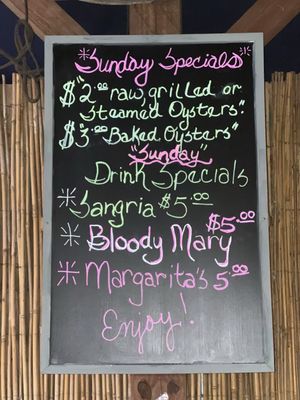 *Sunday Specials*
"$2.00 raw, grilled or
Steamed Oysters."
$3.00 Baked Oysters"
"Sunday"
Drink Specials
*Sangria $5.00
*Bloody Mary $5.00
*Margarita's 5.00
Enjoy!